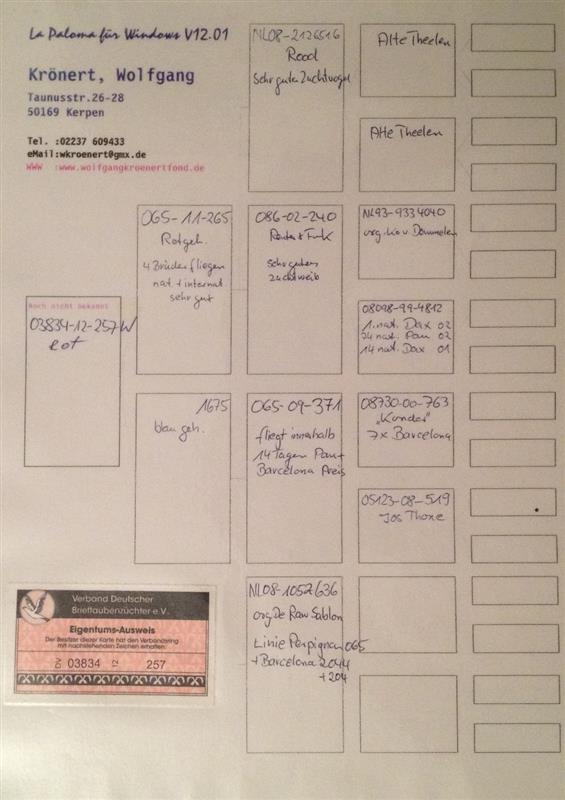 La Paloma für Windows V12.01
Krönert, Wolfgang
Taunusstr.26-28
50169 Kerpen
Tel. :02237 609433
eMail:wkroenert@gmx.de
WWW :www.wolfgangkroenertfond.de
Noch nicht bekannt
03834-12-257W
rot
065-11-265
Rotgeh.
4 Brüder fliegen
nat. + internat.
sehr gut
1675
blau geh.
NL08-2126516
Rood
Sehr guter Zuchtvogel
086-02-240
sehr gutes
Zuchtweib
065-09-371
fliegt innerhalb
14 Tagen Pau+
Barcelona Preis
NL08-1052636
org De Rauw Sablon
Linie Perpignan 065
+Barcelona 2044
+204
Alte Theelen
Alte Theelen
NL93-9334040
org. Ko v Dommelen
08098-99-4812
1. nat. Dax 02
24 nat. Pau 02
14 nat. Dax 01
08730-00-763
"Kunder"
7x Barcelona
05123-08-519
Jos Thone
Verband Deutscher
Brieftaubenzüchter e.V.
Eigentums-Ausweis
Der Besitzer dieser Karte hat den Verbandsring
mit nachstehenden Zeichen erhalten:
03834 12 257